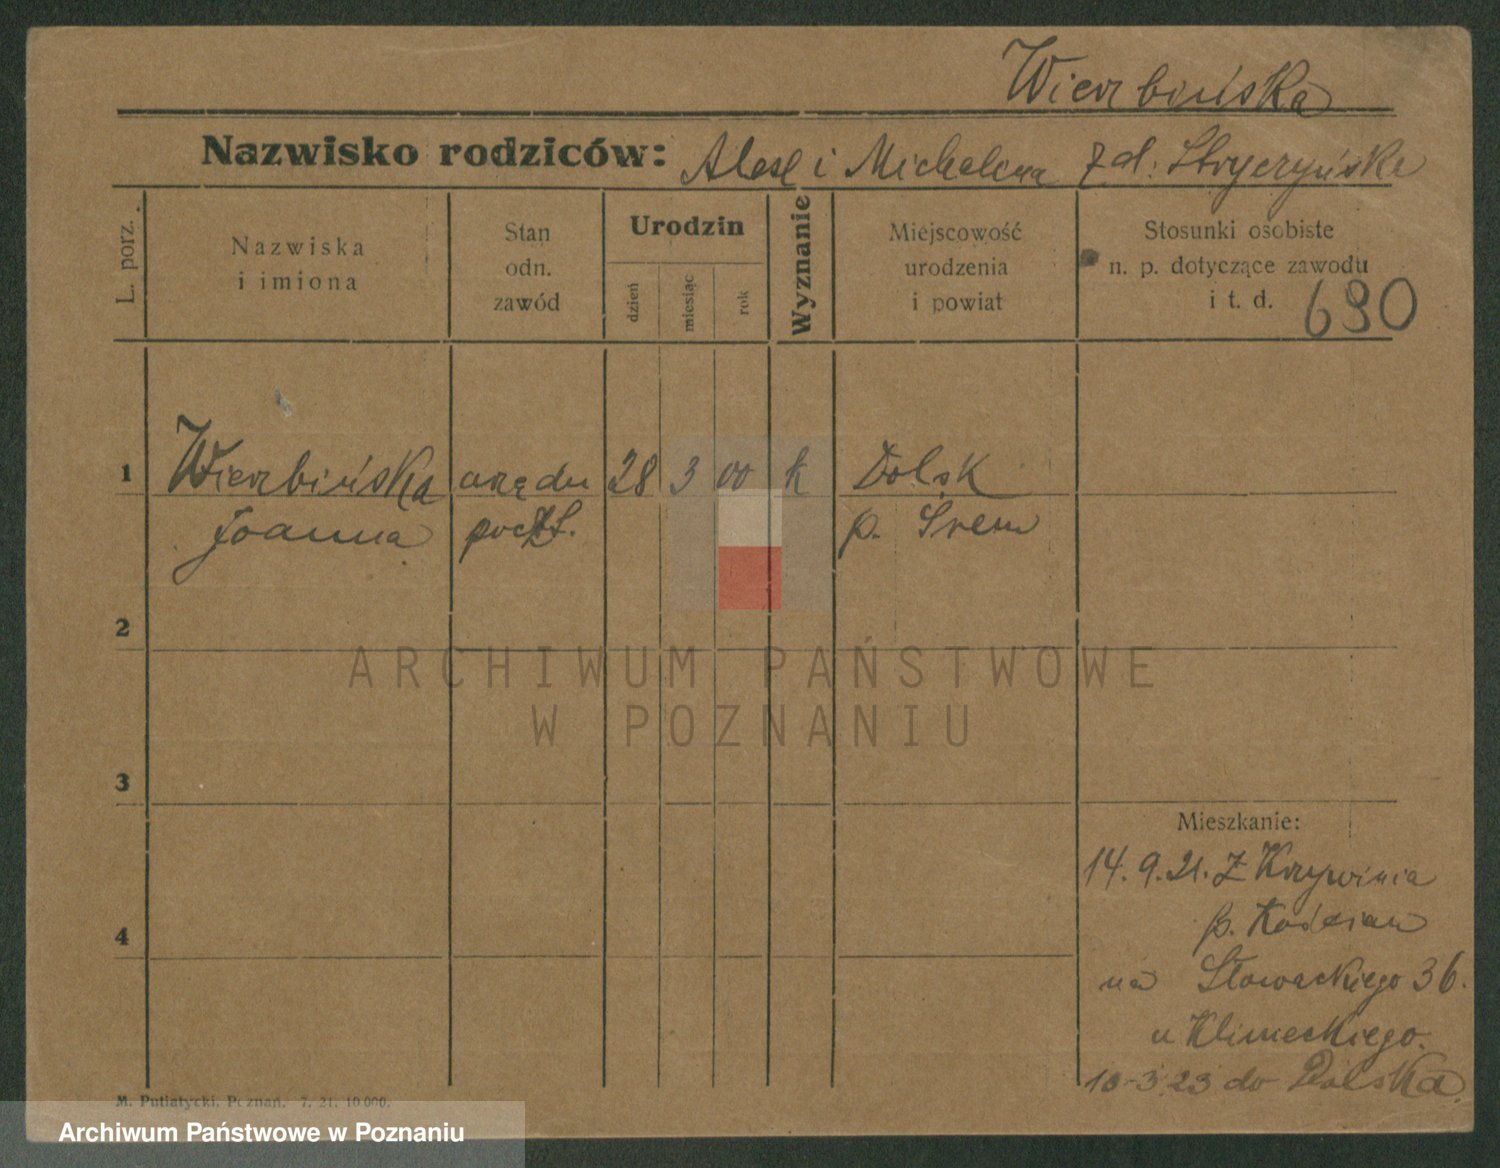 Wierzbińska
Nazwisko rodziców: i Michalena z d. Stryczyńska
L. porz.
Nazwiska
i imiona
Stan
odn.
zawód
Urodzin
dzień
miesiąc
rok
Wyznanie
Miejscowość
urodzenia
i powiat
Stosunki osobiste
n. p. dotyczące zawodu
i t. d.
690
1 Wierzbińska urzędn 28 3 00 k Dolsk
Joanna poczt. p. Srem
2
ARCHIWUM PAŃSTWOWE
W POZNANIU
3
Mieszkanie:
14.9.21. z Krzywinia
p. Kościan
na Słowackiego 36.
4
u Klimeckiego.
10-3 23 do Dolska
M. Putiatycki, Poznań. 7. 21. 10 000.
Archiwum Państwowe w Poznaniu